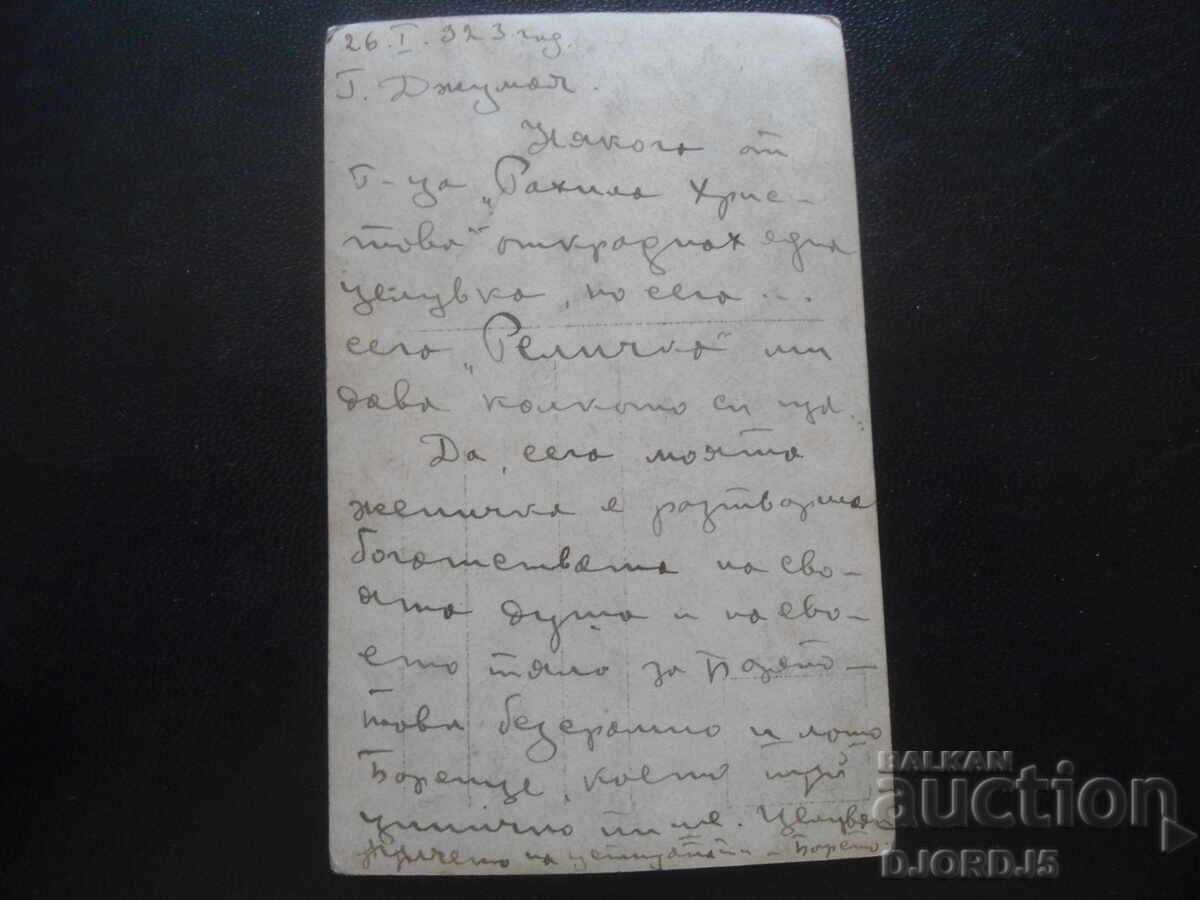 26. I. 923 год.
Г. Джумая.
Някога от
г-ца „Рахила Хрис-
това" откраднах една
целувка, но сега ...
сега „Реличка" ми
дава колкото си ща.
Да, сега моята
женичка е разтворила
богатствата на сво-
ята душа и на сво-
ето тяло за Борето-
това безсрамно и лошо
Боренце, което тъй
цинично пише. Целувай
на Борето
BALKAN
auction
DJORDJ5